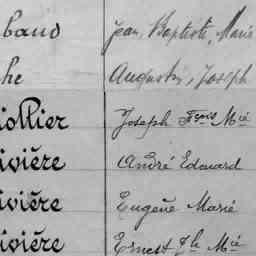 baud Jean, Baptiste, Marie
he Augustin, Joseph
iollier Joseph Fçois Mié
ivière André Edouard
ivière Eugene Marie
ivière Ernest Jh Mié